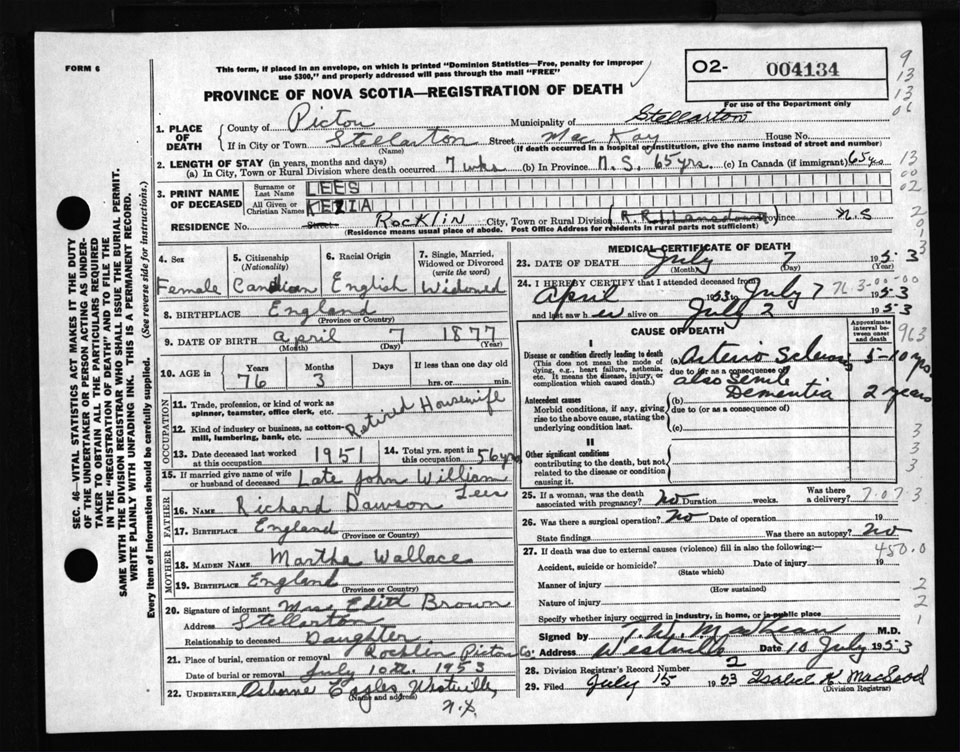 FORM 6
This form, if placed in an envelope, on which is printed "Dominion Statistics—Free, penalty for improper
use $300," and properly addressed will pass through the mail "FREE"
PROVINCE OF NOVA SCOTIA—REGISTRATION OF DEATH
O2- 004134
For use of the Department only
9
13
13
06
13
00
02
2
9
1
3
SEC. 46—VITAL STATISTICS ACT MAKES IT THE DUTY
OF THE UNDERTAKER OR PERSON ACTING AS UNDER-
TAKER TO OBTAIN ALL THE PARTICULARS REQUIRED
IN THE "REGISTRATION OF DEATH" AND TO FILE THE
SAME WITH THE DIVISION REGISTRAR WHO SHALL ISSUE THE BURIAL PERMIT.
WRITE PLAINLY WITH UNFADING INK. THIS IS A PERMANENT RECORD.
Every item of information should be carefully supplied. (See reverse side for instructions.)
1. PLACE OF DEATH
County of Pictou Municipality of Stellarton
If in City or Town Stellarton Street MacKay House No.
(Name) (If death occurred in a hospital or institution, give the name instead of street and number)
2. LENGTH OF STAY (in years, months and days)
(a) In City, Town or Rural Division where death occurred 7 wks (b) In Province N. S. 65 yrs. (c) In Canada (if immigrant) 65 yrs
3. PRINT NAME OF DECEASED
Surname or Last Name LEES
All Given or Christian Names KEZIA
RESIDENCE No. Street Rocklin City, Town or Rural Division (R.R.1. Lansdowne) Province N.S
(Residence means usual place of abode. Post Office Address for residents in rural parts not sufficient)
4. Sex
Female
5. Citizenship
(Nationality)
Canadian
6. Racial Origin
English
7. Single, Married,
Widowed or Divorced
(write the word)
Widowed
8. BIRTHPLACE England
(Province or Country)
9. DATE OF BIRTH April 7 1877
(Month) (Day) (Year)
10. AGE in
Years Months Days If less than one day old
76 3 hrs. or min.
OCCUPATION
11. Trade, profession, or kind of work as
spinner, teamster, office clerk, etc.
Retired Housewife
12. Kind of industry or business, as cotton-
mill, lumbering, bank, etc.
13. Date deceased last worked
at this occupation 1951
14. Total yrs. spent in
this occupation 56 yrs
15. If married give name of wife
or husband of deceased Late John William
Lees
FATHER
16. NAME Richard Dawson
17. BIRTHPLACE England
(Province or Country)
MOTHER
18. MAIDEN NAME Martha Wallace
19. BIRTHPLACE England
(Province or Country)
20. Signature of informant Mrs. Edith Brown
Address Stellarton
Relationship to deceased Daughter
21. Place of burial, cremation or removal Rocklin Pictou Co.
Date of burial or removal July 10th. 1953
22. UNDERTAKER Osborne Eagles Westville,
(Name and address)
N.S.
MEDICAL CERTIFICATE OF DEATH
23. DATE OF DEATH July 7 1953
(Month) (Day) (Year)
24. I HEREBY CERTIFY that I attended deceased from
April 1953 to July 7 76.3-00-00 1953
and last saw her alive on July 2 1953
CAUSE OF DEATH
Approximate
interval be-
tween onset
and death
963
I
Disease or condition directly leading to death
(This does not mean the mode of
dying, e.g., heart failure, asthenia,
etc. It means the disease, injury, or
complication which caused death.)
(a) Arterio Sclerosis 5-10 yrs
due to (or as a consequence of)
also Senile
Dementia 2 years
Antecedent causes
Morbid conditions, if any, giving
rise to the above cause, stating the
underlying condition last.
(b)
due to (or as a consequence of)
(c)
II
Other significant conditions
contributing to the death, but not
related to the disease or condition
causing it.
3
3
3
3
25. If a woman, was the death
associated with pregnancy? no Duration weeks. Was there
a delivery? 7.07.3
26. Was there a surgical operation? no Date of operation 19
State findings Was there an autopsy? no
27. If death was due to external causes (violence) fill in also the following:— 450.0
Accident, suicide or homicide? Date of injury 19
(State which)
Manner of injury
(How sustained)
Nature of injury
Specify whether injury occurred in industry, in home, or in public place
2
2
1
Signed by M.D.
Address Westville Date 10 July 1953
28. Division Registrar's Record Number 2
29. Filed July 15 1953 Isabel K. MacLeod
(Division Registrar)